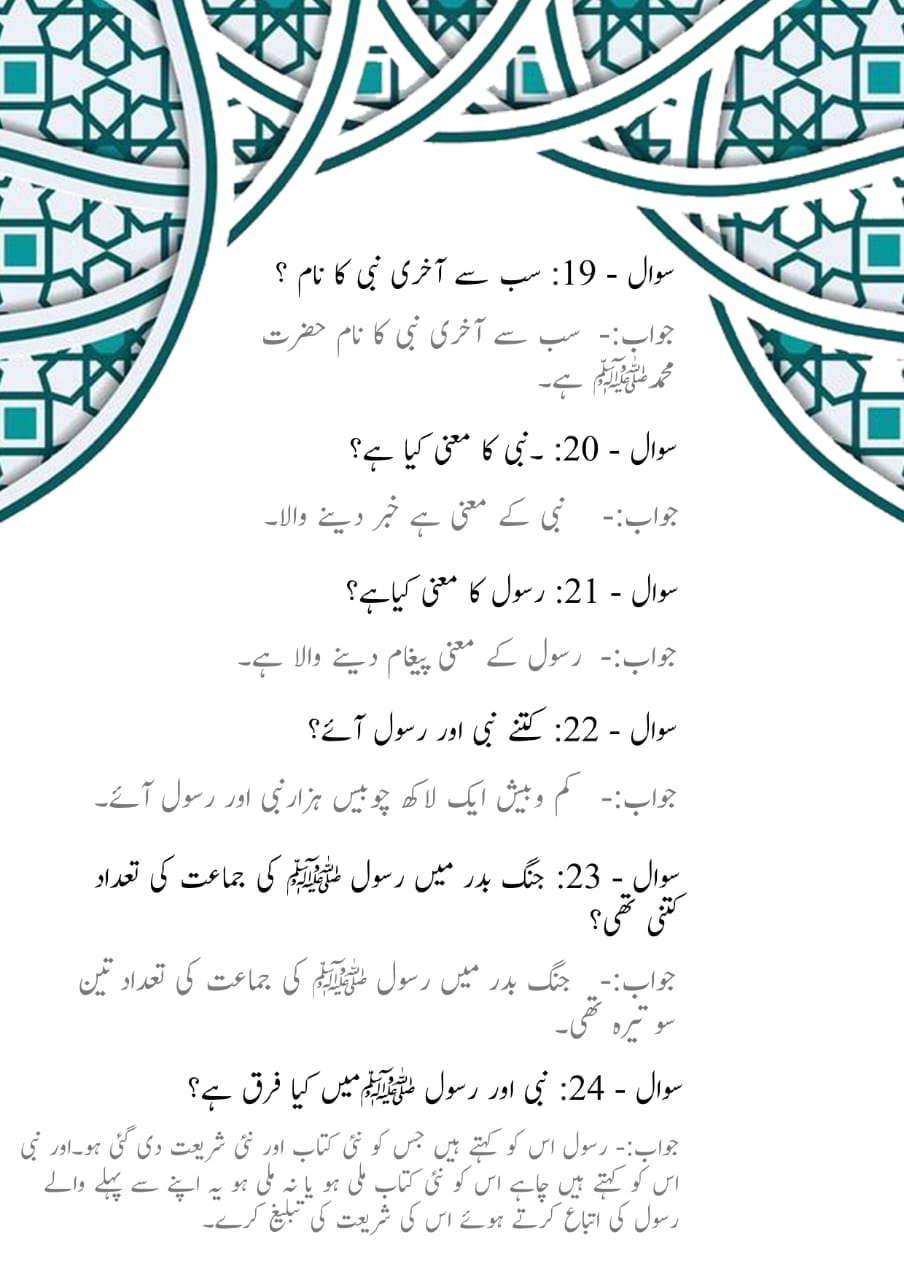 سوال - 19: سب سے آخری نبی کا نام ؟
جواب:- سب سے آخری نبی کا نام حضرت
محمدﷺ ہے۔
سوال - 20: ۔نبی کا معنی کیا ہے؟
جواب:- نبی کے معنی ہے خبر دینے والا۔
سوال - 21: رسول کا معنی کیاہے؟
جواب:- رسول کے معنی پیغام دینے والا ہے۔
سوال - 22: کتنے نبی اور رسول آئے؟
جواب:- کم وبیش ایک لاکھ چوبیس ہزارنبی اور رسول آئے۔
سوال - 23: جنگ بدر میں رسول ﷺ کی جماعت کی تعداد
کتنی تھی؟
جواب:- جنگ بدر میں رسول ﷺ کی جماعت کی تعداد تین
سو تیرہ تھی۔
سوال - 24: نبی اور رسول ﷺمیں کیا فرق ہے؟
جواب:- رسول اس کو کہتے ہیں جس کو نئی کتاب اور نئی شریعت دی گئی ہو۔اور نبی
اس کو کہتے ہیں چاہے اس کو نئی کتاب ملی ہو یا نہ ملی ہو یہ اپنے سے پہلے والے
رسول کی اتباع کرتے ہوئے اس کی شریعت کی تبلیغ کرے۔